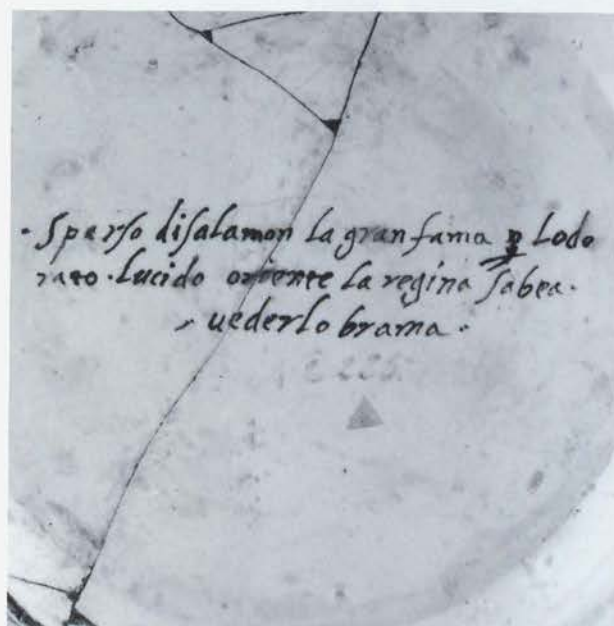 · Sparso disalamon la gran fama ꝑ lodo
rato · lucido oriente la regina sabea ·
uederlo brama ·